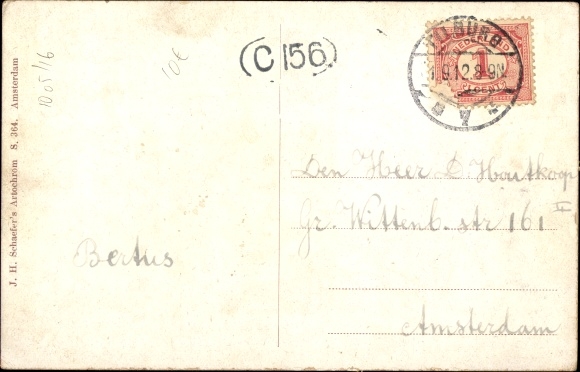 J. H. Schaefer's Artochrom S. 364. Amsterdam
10 05/16
10€
(C 156)
NEDERLAND
1
CENT
9.12.8-9N
Den Heer D. Houtkoop
Gr. Wittenb. str 161 II
Amsterdam
Bertus